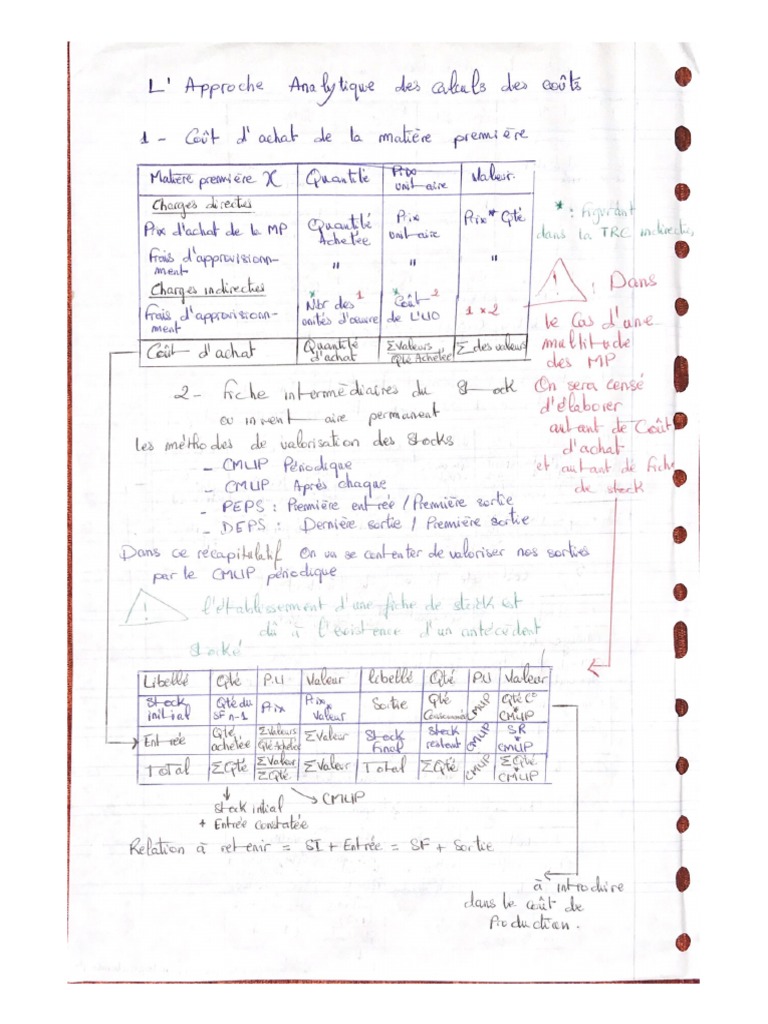 L'Approche Analytique des calculs des coûts
1 - Coût d'achat de la matière première
Matière première X | Quantité | Prix unitaire | Valeur
Charges directes
Prix d'achat de la MP | Quantité Achetée | Prix unitaire | Prix * Qté
Frais d'approvisionn-ment | " | " | "
Charges indirectes
Frais d'approvisionn-ment | * Nbr des 1 unités d'œuvre | * Coût 2 de L'UO | 1 * 2
Coût d'achat | Quantité d'achat | ΣValeurs / Qté Achetée | Σ des valeurs
* : Figurant
dans la TRC indirectes
! : Dans
le Cas d'une
multitude
des MP
On sera censé
d'élaborer
autant de Coût
d'achat
et autant de fiche
de stock
2 - Fiche intermédiaires du Stock
ou inventaire permanent
Les méthodes de valorisation des stocks
- CMUP Périodique
- CMUP Après chaque
- PEPS : Première entrée / Première sortie
- DEPS : Dernière sortie / Première sortie
Dans ce récapitulatif On va se contenter de valoriser nos sorties
par le CMUP périodique
! L'établissement d'une fiche de stock est
dû à l'existence d'un antécédent
stocké
Libellé | Qté | P.U | Valeur | Libellé | Qté | PU | Valeur
Stock initial | Qté du SF n-1 | Prix | Prix * Valeur | Sortie | Qté Consommée | CMUP | Qté C° * CMUP
Entrée | Qté achetée | ΣValeurs / Qté Achetée | ΣValeur | Stock Final | Stock restent | CMUP | SR * CMUP
Total | ΣQté | ΣValeur / ΣQté | ΣValeur | Total | ΣQté | CMUP | ΣQté * CMUP
Stock intial
+ Entrée constatée
CMUP
Relation à retenir = SI + Entrée = SF + Sortie
à introduire
dans le coût de
Production.